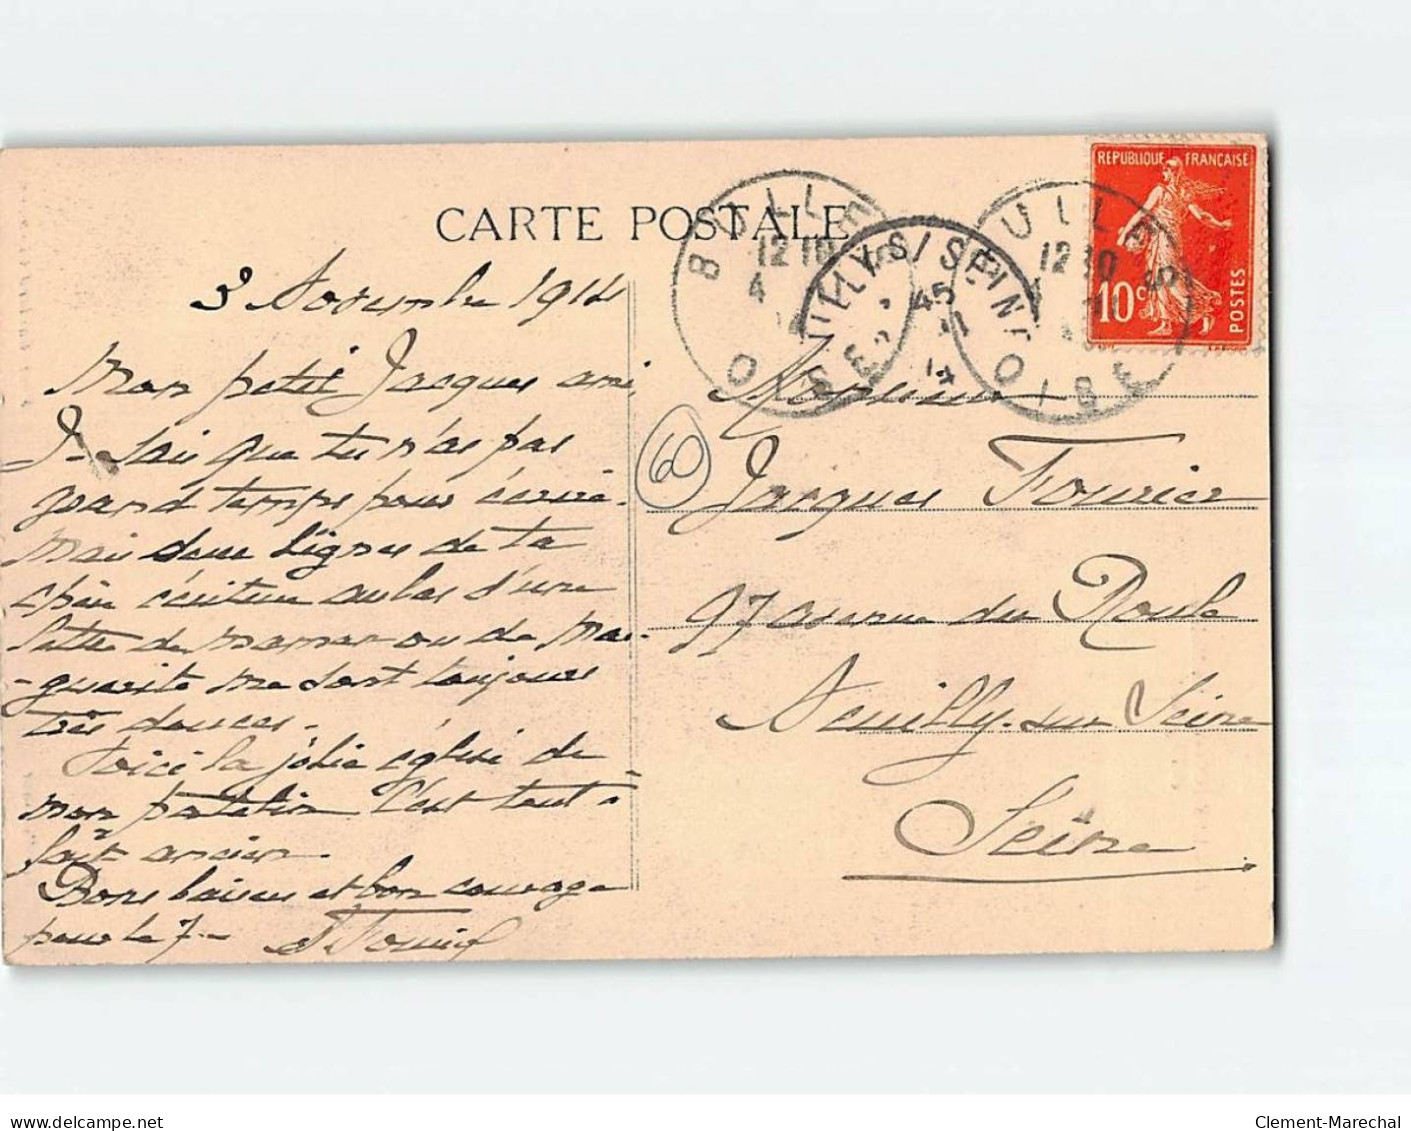 CARTE POSTALE
REPUBLIQUE FRANÇAISE
10 c
POSTES
BULLES
12 10
4
OISE
NEUILLY S/SEINE
45
11
14
BULLES
12 10
OISE
3 Novembre 1914
Mon petit Jacques ami,
Je sais que tu n'as pas
grand temps pour écrire.
Mais deux lignes de ta
chère écriture au bas d'une
lettre de maman ou de Mar-
-guerite me sont toujours
très douces.
Voici la jolie église de
mon patelin. C'est tout à
fait ancien.
Bons baisers et bon courage
pour le 7.-
Fourier
60
Monsieur
Jacques Fourier
97 avenue du Roule
Neuilly-sur Seine
Seine
Clement-Marechal